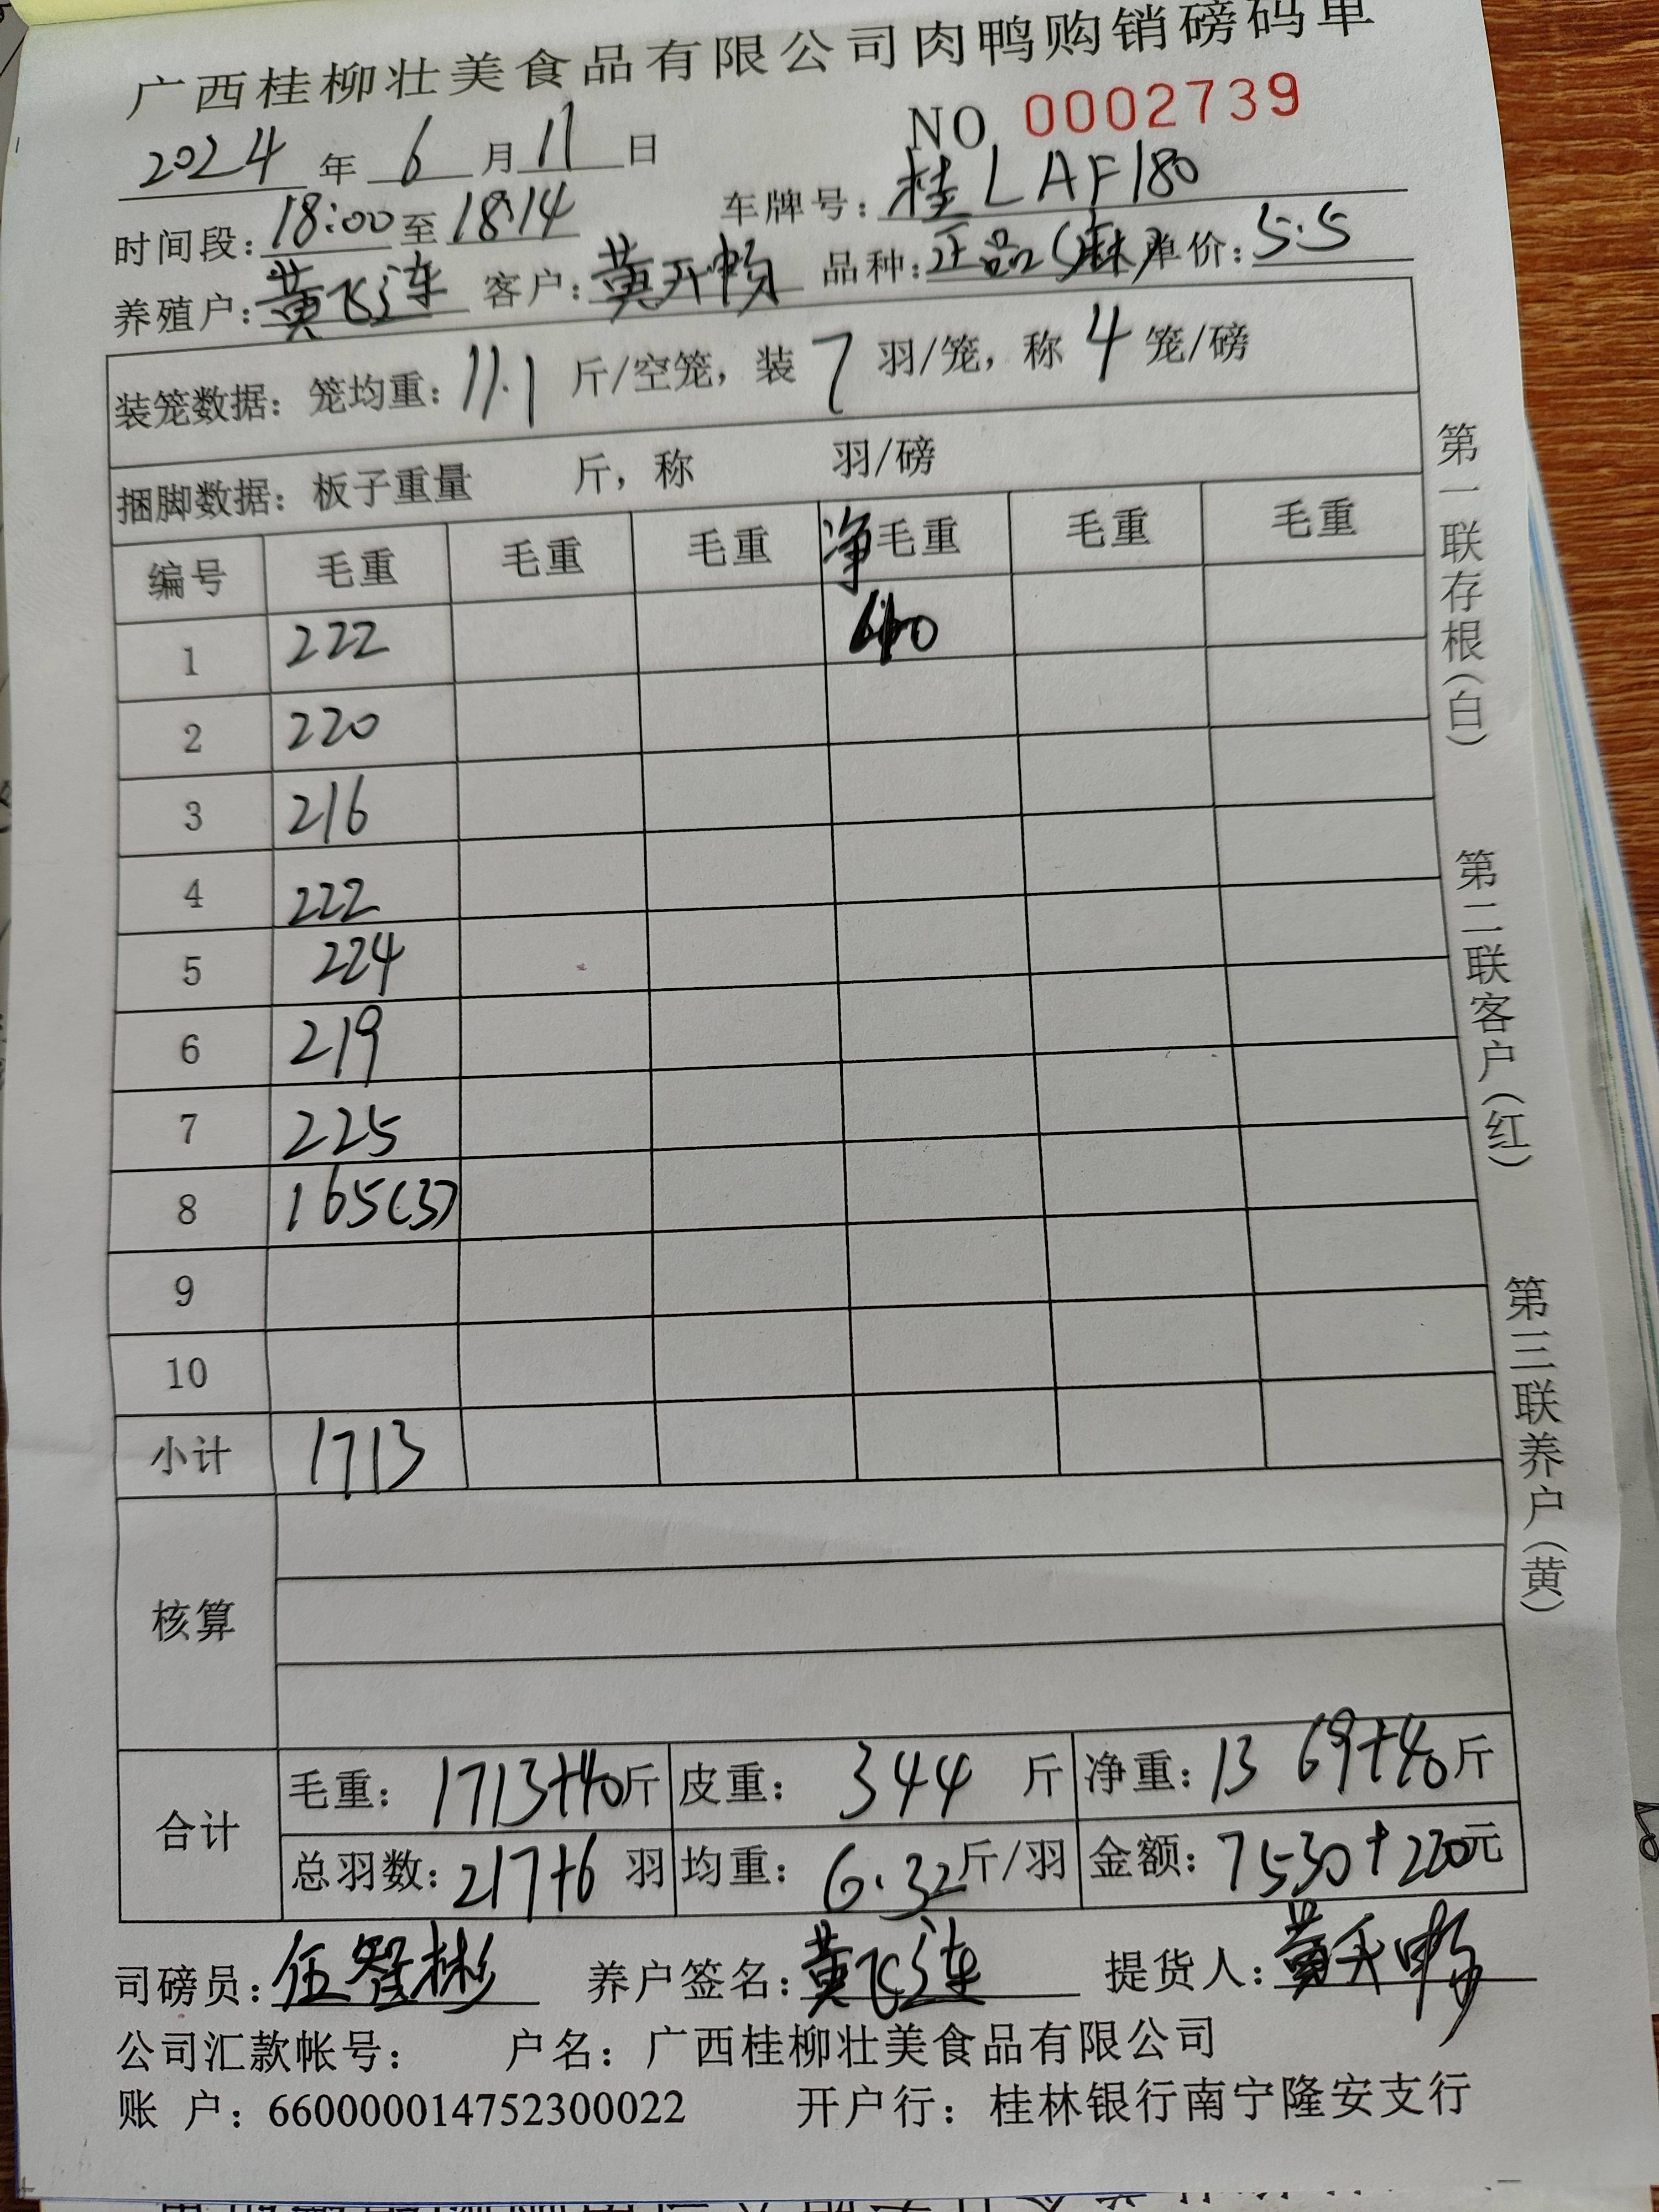 广西桂柳壮美食品有限公司肉鸭购销磅码单
NO 0002739
2024 年 6 月 11 日
时间段: 18:00 至 18:14 车牌号: 桂LAF180
养殖户: 黄飞连 客户: 黄天畅 品种: 正品(麻) 单价: 5.5
装笼数据: 笼均重: 11.1 斤/空笼, 装 7 羽/笼, 称 4 笼/磅
捆脚数据: 板子重量 斤, 称 羽/磅
编号 毛重 毛重 毛重 净毛重 毛重 毛重
1 222
2 220
3 216
4 222
5 224
6 219
7 225
8 165(3)
9
10
小计 1713
核算
合计 毛重: 1713+40斤 皮重: 344 斤 净重: 1369+40斤
总羽数: 217+6 羽 均重: 6.32斤/羽 金额: 7530+220元
司磅员: 伍智彬 养户签名: 黄飞连 提货人: 黄天畅
公司汇款帐号: 户名: 广西桂柳壮美食品有限公司
账 户: 660000014752300022 开户行: 桂林银行南宁隆安支行
第一联存根(白)
第二联客户(红)
第三联养户(黄)